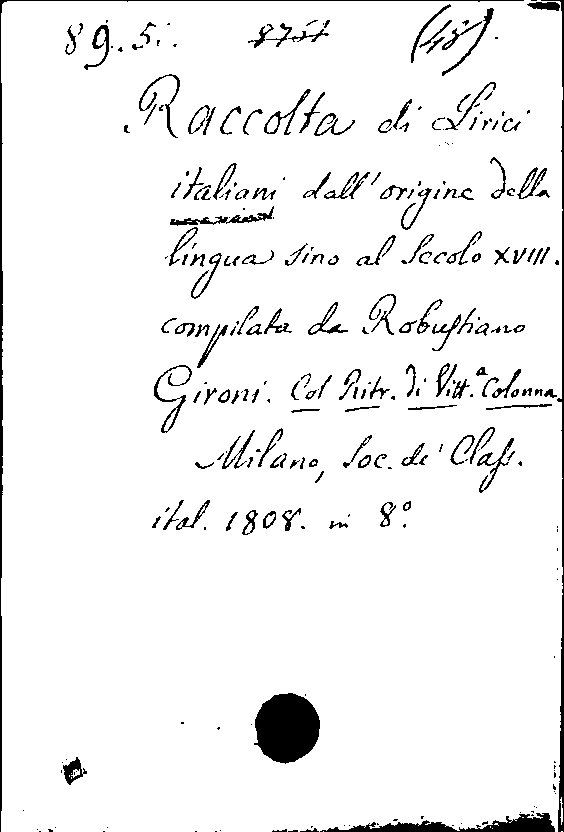 89.5i. 8751 (48).
Raccolta di Lirici
italiani dall'origine della
lingua sino al Secolo XVIII.
compilata da Robustiano
Gironi. Col Ritr. di Vitt.ª Colonna.
Milano, Soc. de' Class.
ital. 1808. in 8º.